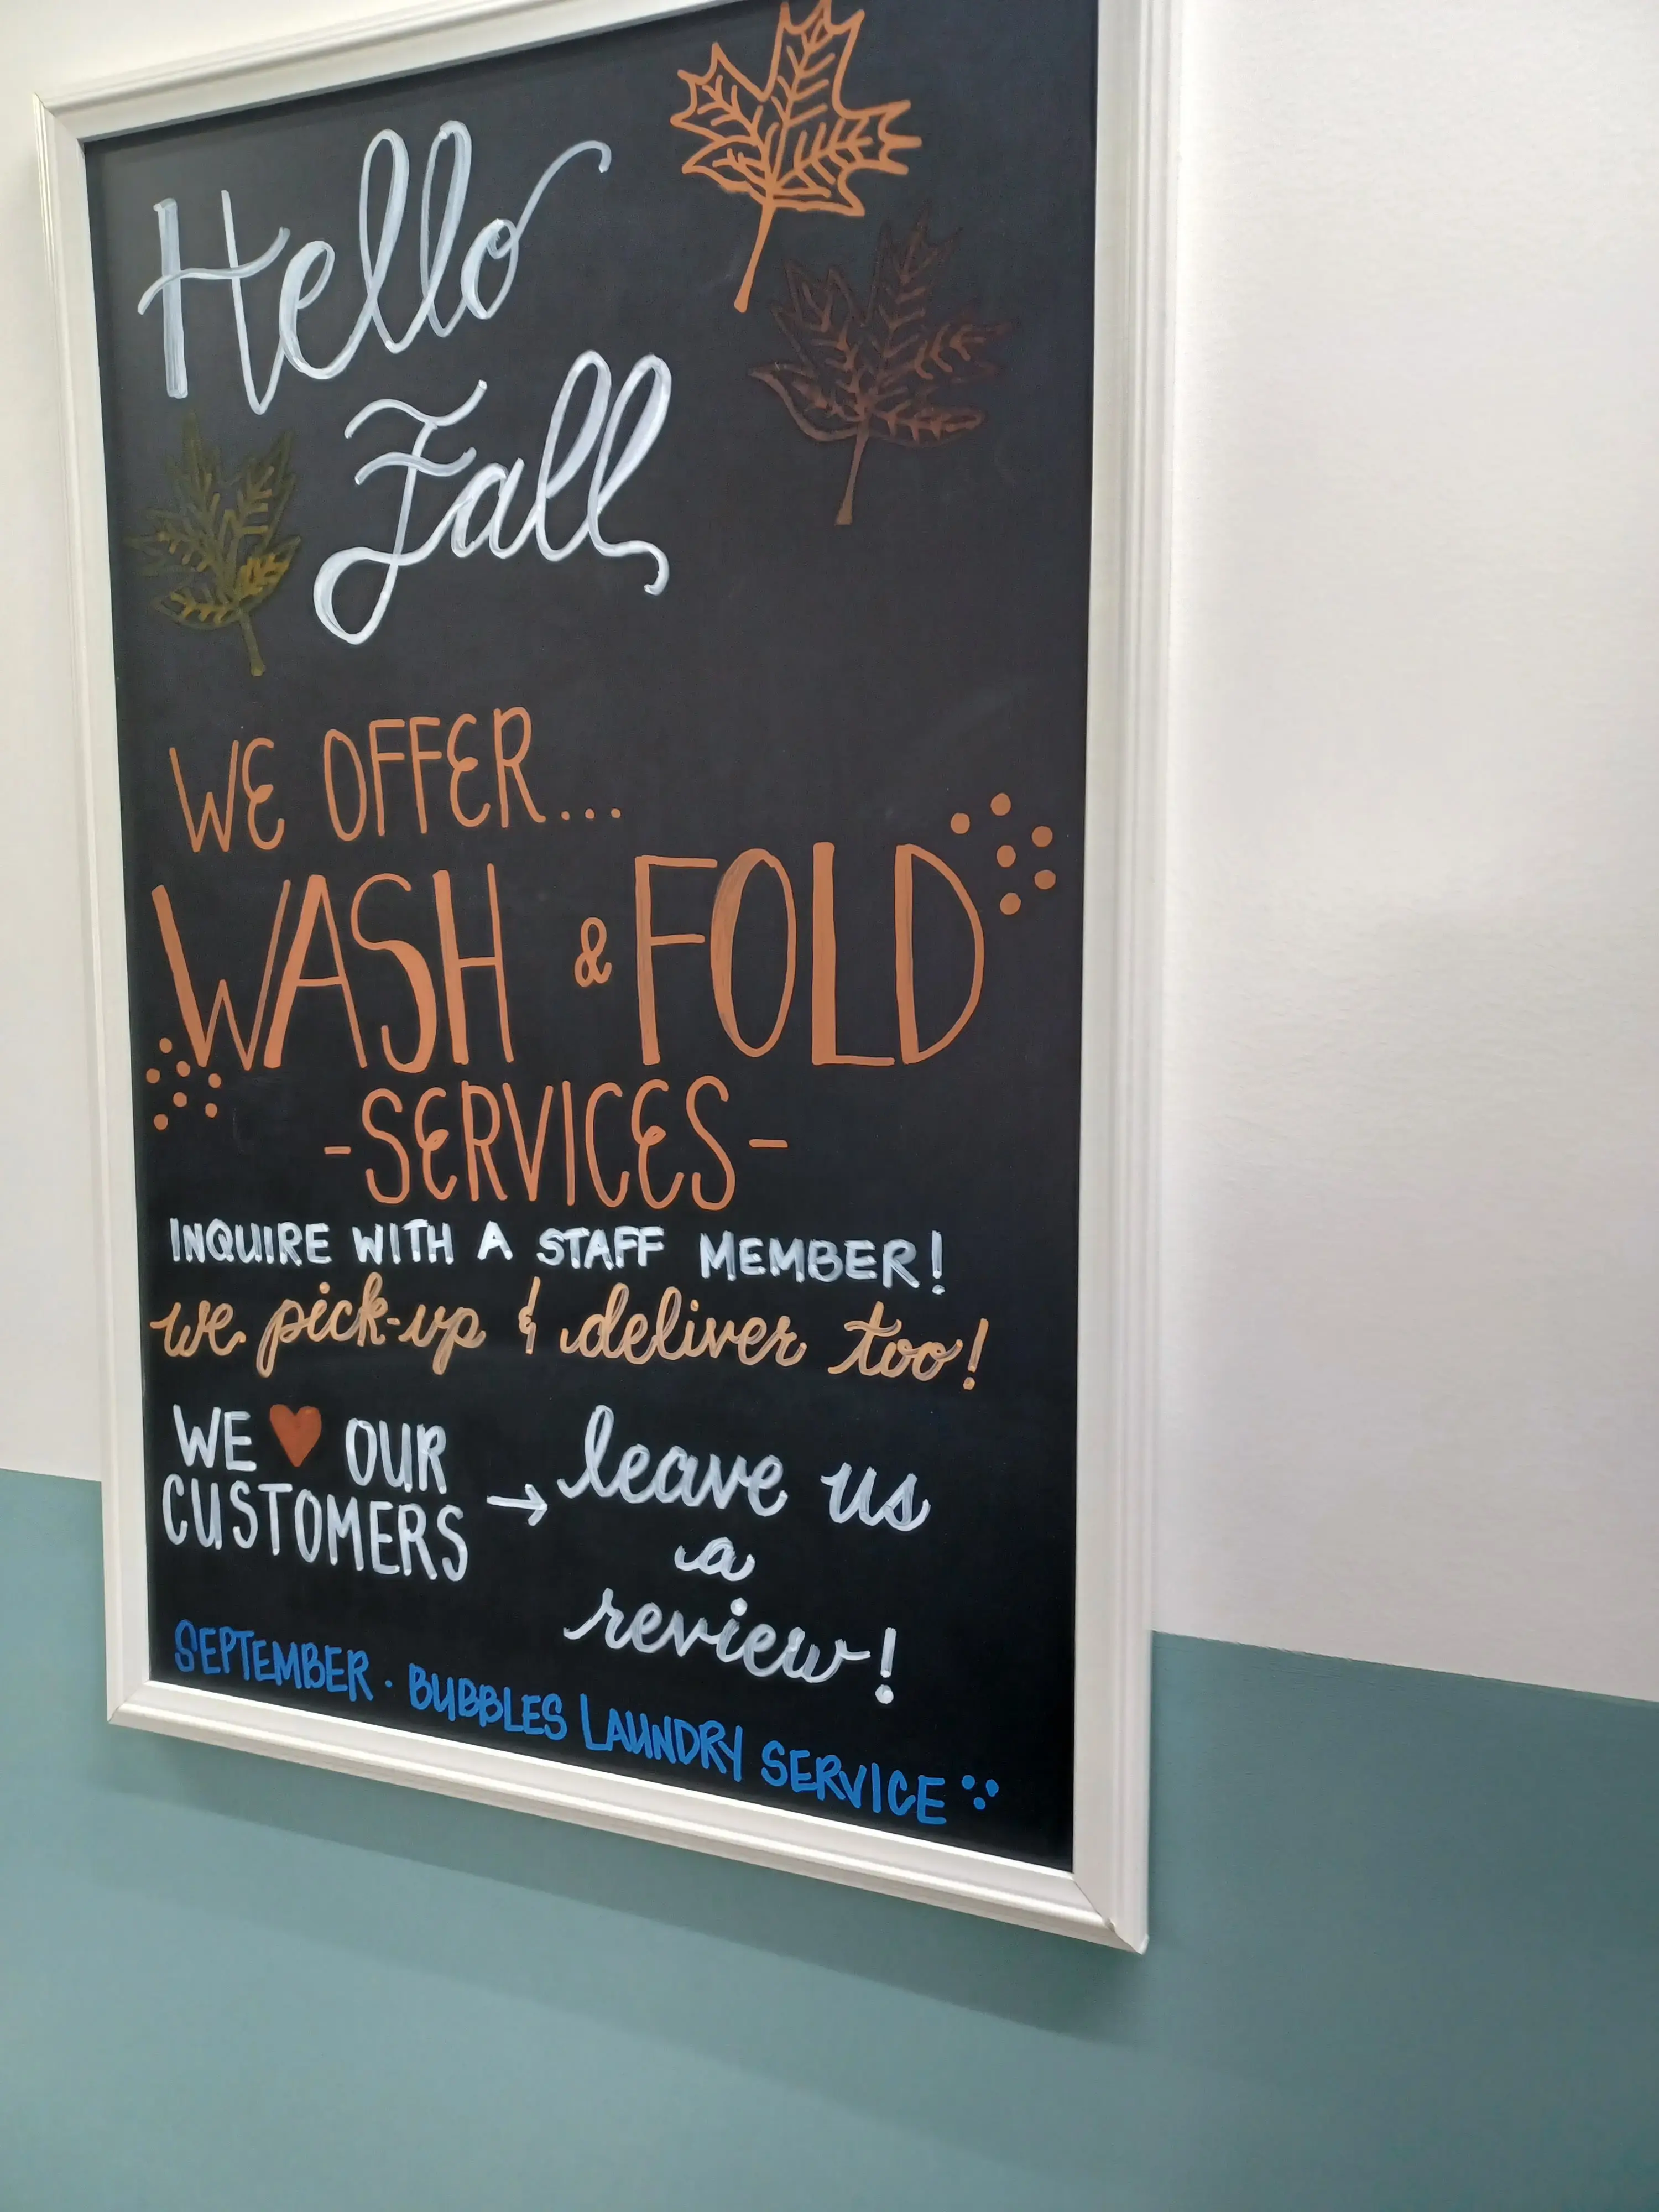 Hello
Fall
WE OFFER...
WASH & FOLD
-SERVICES-
INQUIRE WITH A STAFF MEMBER!
we pick-up & deliver too!
WE ♥ OUR
CUSTOMERS →
leave us
a
review!
SEPTEMBER · BUBBLES LAUNDRY SERVICE